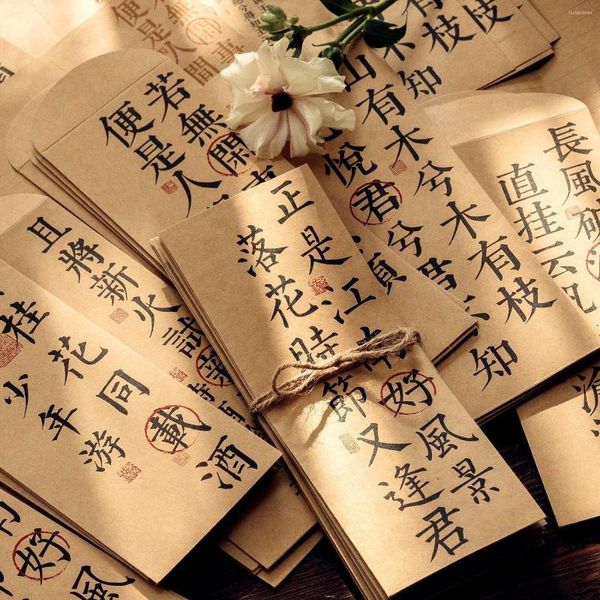 有枝
木
知
人間
便是
長風破
直挂云帆
山有木兮木有枝
悅君兮君
知
若無閑
便是人
且將新火試
正是江南好風景
落花時節又逢君
桂花同載酒
少年游
好風